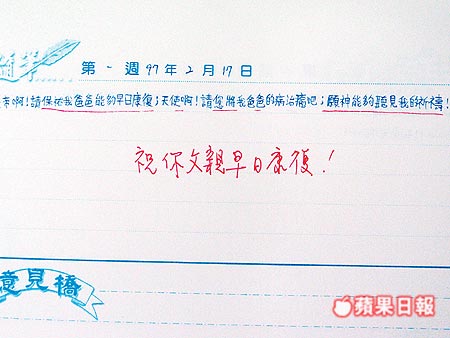 隨筆
第一週97年2月17日
啊！請保祐我爸爸能夠早日康復；天使啊！請您將我爸爸的病治癒吧；願神能夠聽見我的祈禱！
祝你父親早日康復！
意見橋
蘋果日報